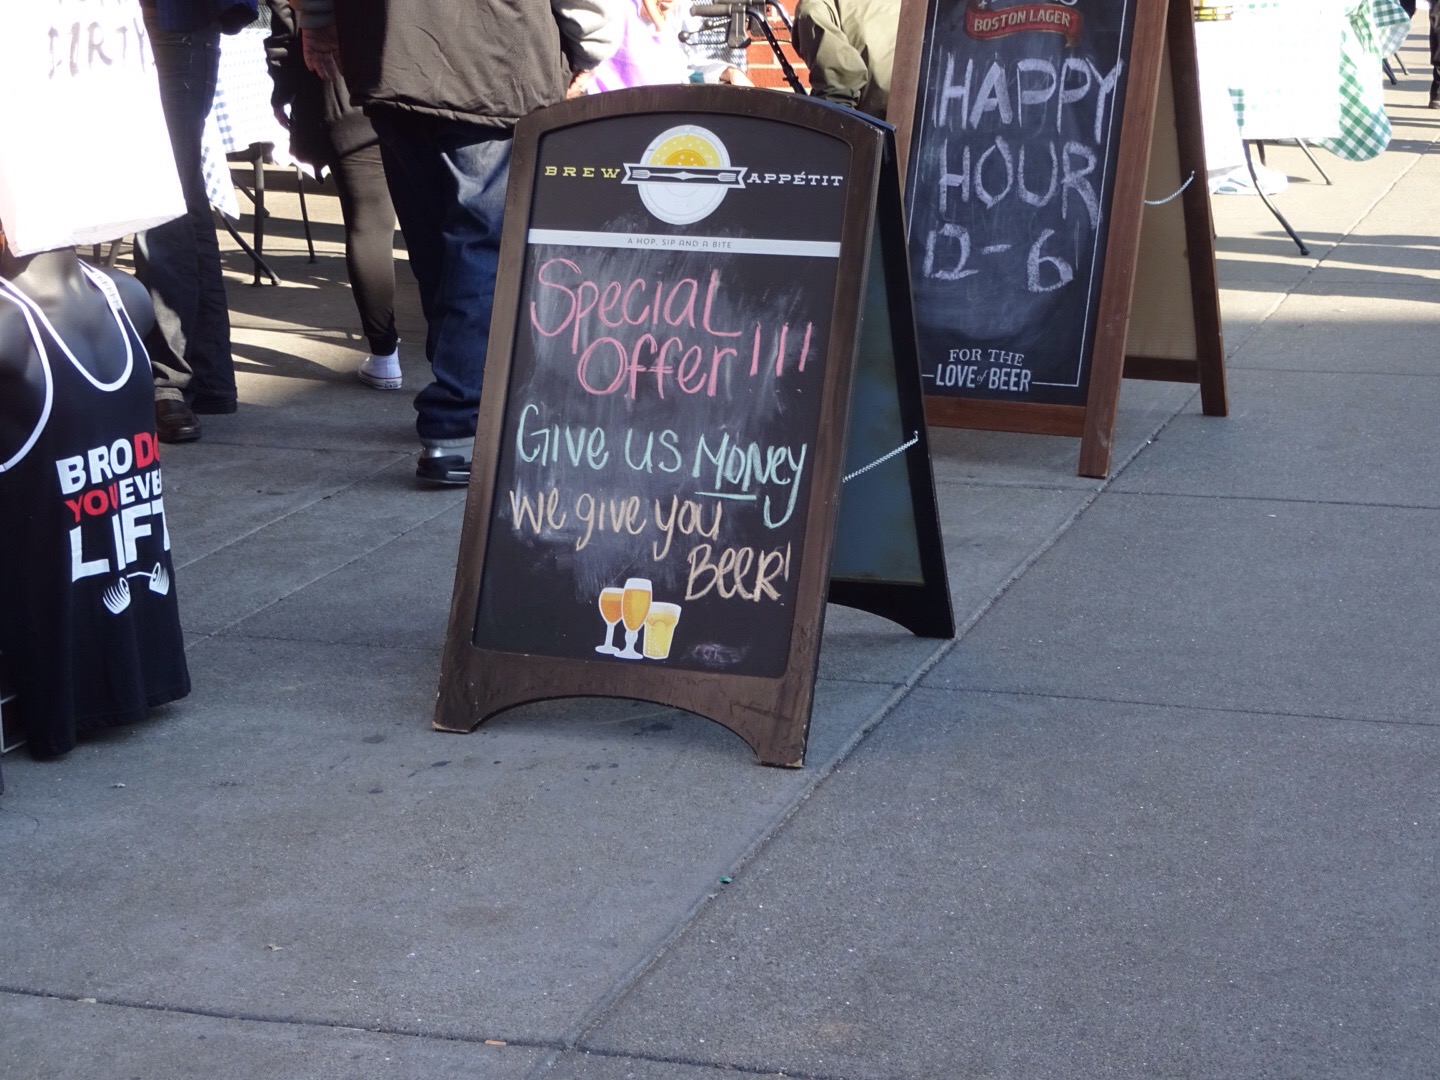 DIRTY
BRO DO
YOU EVEN
LIFT
BREW APPÉTIT
A HOP, SIP AND A BITE
Special
Offer!!!
Give us Money
We give you
Beer!
BOSTON LAGER
HAPPY
HOUR
12-6
FOR THE
LOVE of BEER